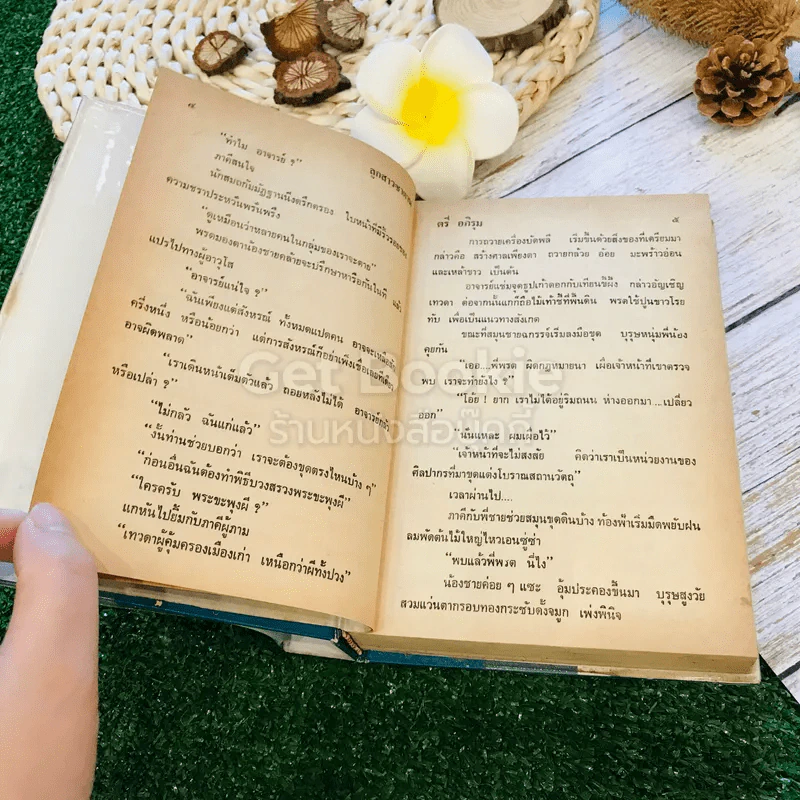 ๔
ลูกสาวซาตาน
"ทำไม อาจารย์ ?"
ภาคีสนใจ
นักสมถกัมมัฏฐานนิ่งตรึกตรอง ใบหน้าที่มีริ้วรอยของ
ความชราประหวั่นพรั่นพรึง
"ดูเหมือนว่าหลายคนในกลุ่มของเราจะตาย"
พรตมองตาน้องชายคล้ายจะปรึกษาหารือกันในที แล้ว
แปรไปทางผู้อาวุโส
"อาจารย์แน่ใจ ?"
"ฉันเพียงแต่สังหรณ์ ทั้งหมดแปดคน อาจจะเหลือสัก
ครึ่งหนึ่ง หรือน้อยกว่า แต่การสังหรณ์ก็อย่าเพิ่งเชื่อเลยทีเดียว
อาจผิดพลาด"
"เราเดินหน้าเต็มตัวแล้ว ถอยหลังไม่ได้ อาจารย์กลัว
หรือเปล่า ?"
"ไม่กลัว ฉันแก่แล้ว"
"งั้นท่านช่วยบอกว่า เราจะต้องขุดตรงไหนบ้าง ๆ"
"ก่อนอื่นฉันต้องทำพิธีบวงสรวงพระขะพุงผี"
"ใครครับ พระขะพุงผี ?"
แกหันไปยิ้มกับภาคีผู้ถาม
"เทวดาผู้คุ้มครองเมืองเก่า เหนือกว่าผีทั้งปวง"
ตรี อภิรุม
๕
การถวายเครื่องบัดพลี เริ่มขึ้นด้วยสิ่งของที่เตรียมมา
กล่าวคือ สร้างศาลเพียงตา ถวายกล้วย อ้อย มะพร้าวอ่อน
และเหล้าขาว เป็นต้น
อาจารย์แช่มจุดธูปเก้าดอกกับเทียนขี้ผึ้ง กล่าวอัญเชิญ
เทวดา ต่อจากนั้นแกก็ถือไม้เท้าชี้ที่พื้นดิน พรตใช้ปูนขาวโรย
ทับ เพื่อเป็นแนวทางสังเกต
ขณะที่สมุนชายฉกรรจ์เริ่มลงมือขุด บุรุษหนุ่มพี่น้อง
คุยกัน
"เออ....พี่พรต ผิดกฎหมายนา เผื่อเจ้าหน้าที่เขาตรวจ
พบ เราจะทำยังไง ?"
"โอ๊ย ! ยาก เราไม่ได้อยู่ริมถนน ห่างออกมา....เปลี่ยว
ออก"
"นั่นแหละ ผมเผื่อไว้"
"เจ้าหน้าที่จะไม่สงสัย คิดว่าเราเป็นหน่วยงานของ
ศิลปากรที่มาขุดแต่งโบราณสถานวัตถุ"
เวลาผ่านไป....
ภาคีกับพี่ชายช่วยสมุนขุดดินบ้าง ท้องฟ้าเริ่มมืดพยับฝน
ลมพัดต้นไม้ใหญ่ไหวเอนซู่ซ่า
"พบแล้วพี่พรต นี่ไง"
น้องชายค่อย ๆ แซะ อุ้มประคองขึ้นมา บุรุษสูงวัย
สวมแว่นตากรอบทองกระชับดั้งจมูก เพ่งพินิจ
Get Bookie
ร้านหนังสือบุ๊คกี้